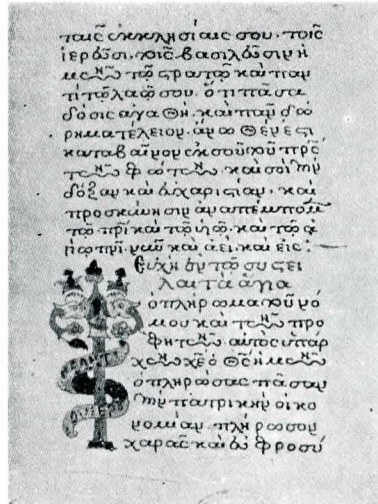 ταῖς ἐκκλησίαις σου· τοῖς
ἱερεῦσι, τοῖς βασιλεῦσιν ἡ
μῶν τῷ στρατῷ καὶ παν
τὶ τῷ λαῷ σου. ὅτι πᾶσα
δόσις ἀγαθὴ· καὶ πᾶν δώ
ρημα τέλειον· ἄνωθέν ἐστι
καταβαῖνον ἐκ σοῦ τοῦ πρ̅ς
τῶν φώτων· καὶ σοὶ τὴν
δόξαν καὶ εὐχαριστίαν· καὶ
προσκύνησιν ἀναπέμπομ
τῷ πρ̅ὶ καὶ τῷ υἱῷ· καὶ τῷ ἁ
γίῳ πν̅ι· νῦν καὶ ἀεὶ καὶ εἰς
Εὐχὴ ἐν τῷ συστεῖ
λαι τὰ ἅγια
Τὸ πλήρωμα τοῦ νό
μου καὶ τῶν προ
φητῶν αὐτὸς ὑπάρ
χων χ̅ε̅ ὁ θ̅ς̅ ἡμῶν
ὁ πληρώσας πᾶσαν
τὴν πατρικὴν οἰκο
νομίαν. πλήρωσον
χαρᾶς καὶ εὐφροσύ